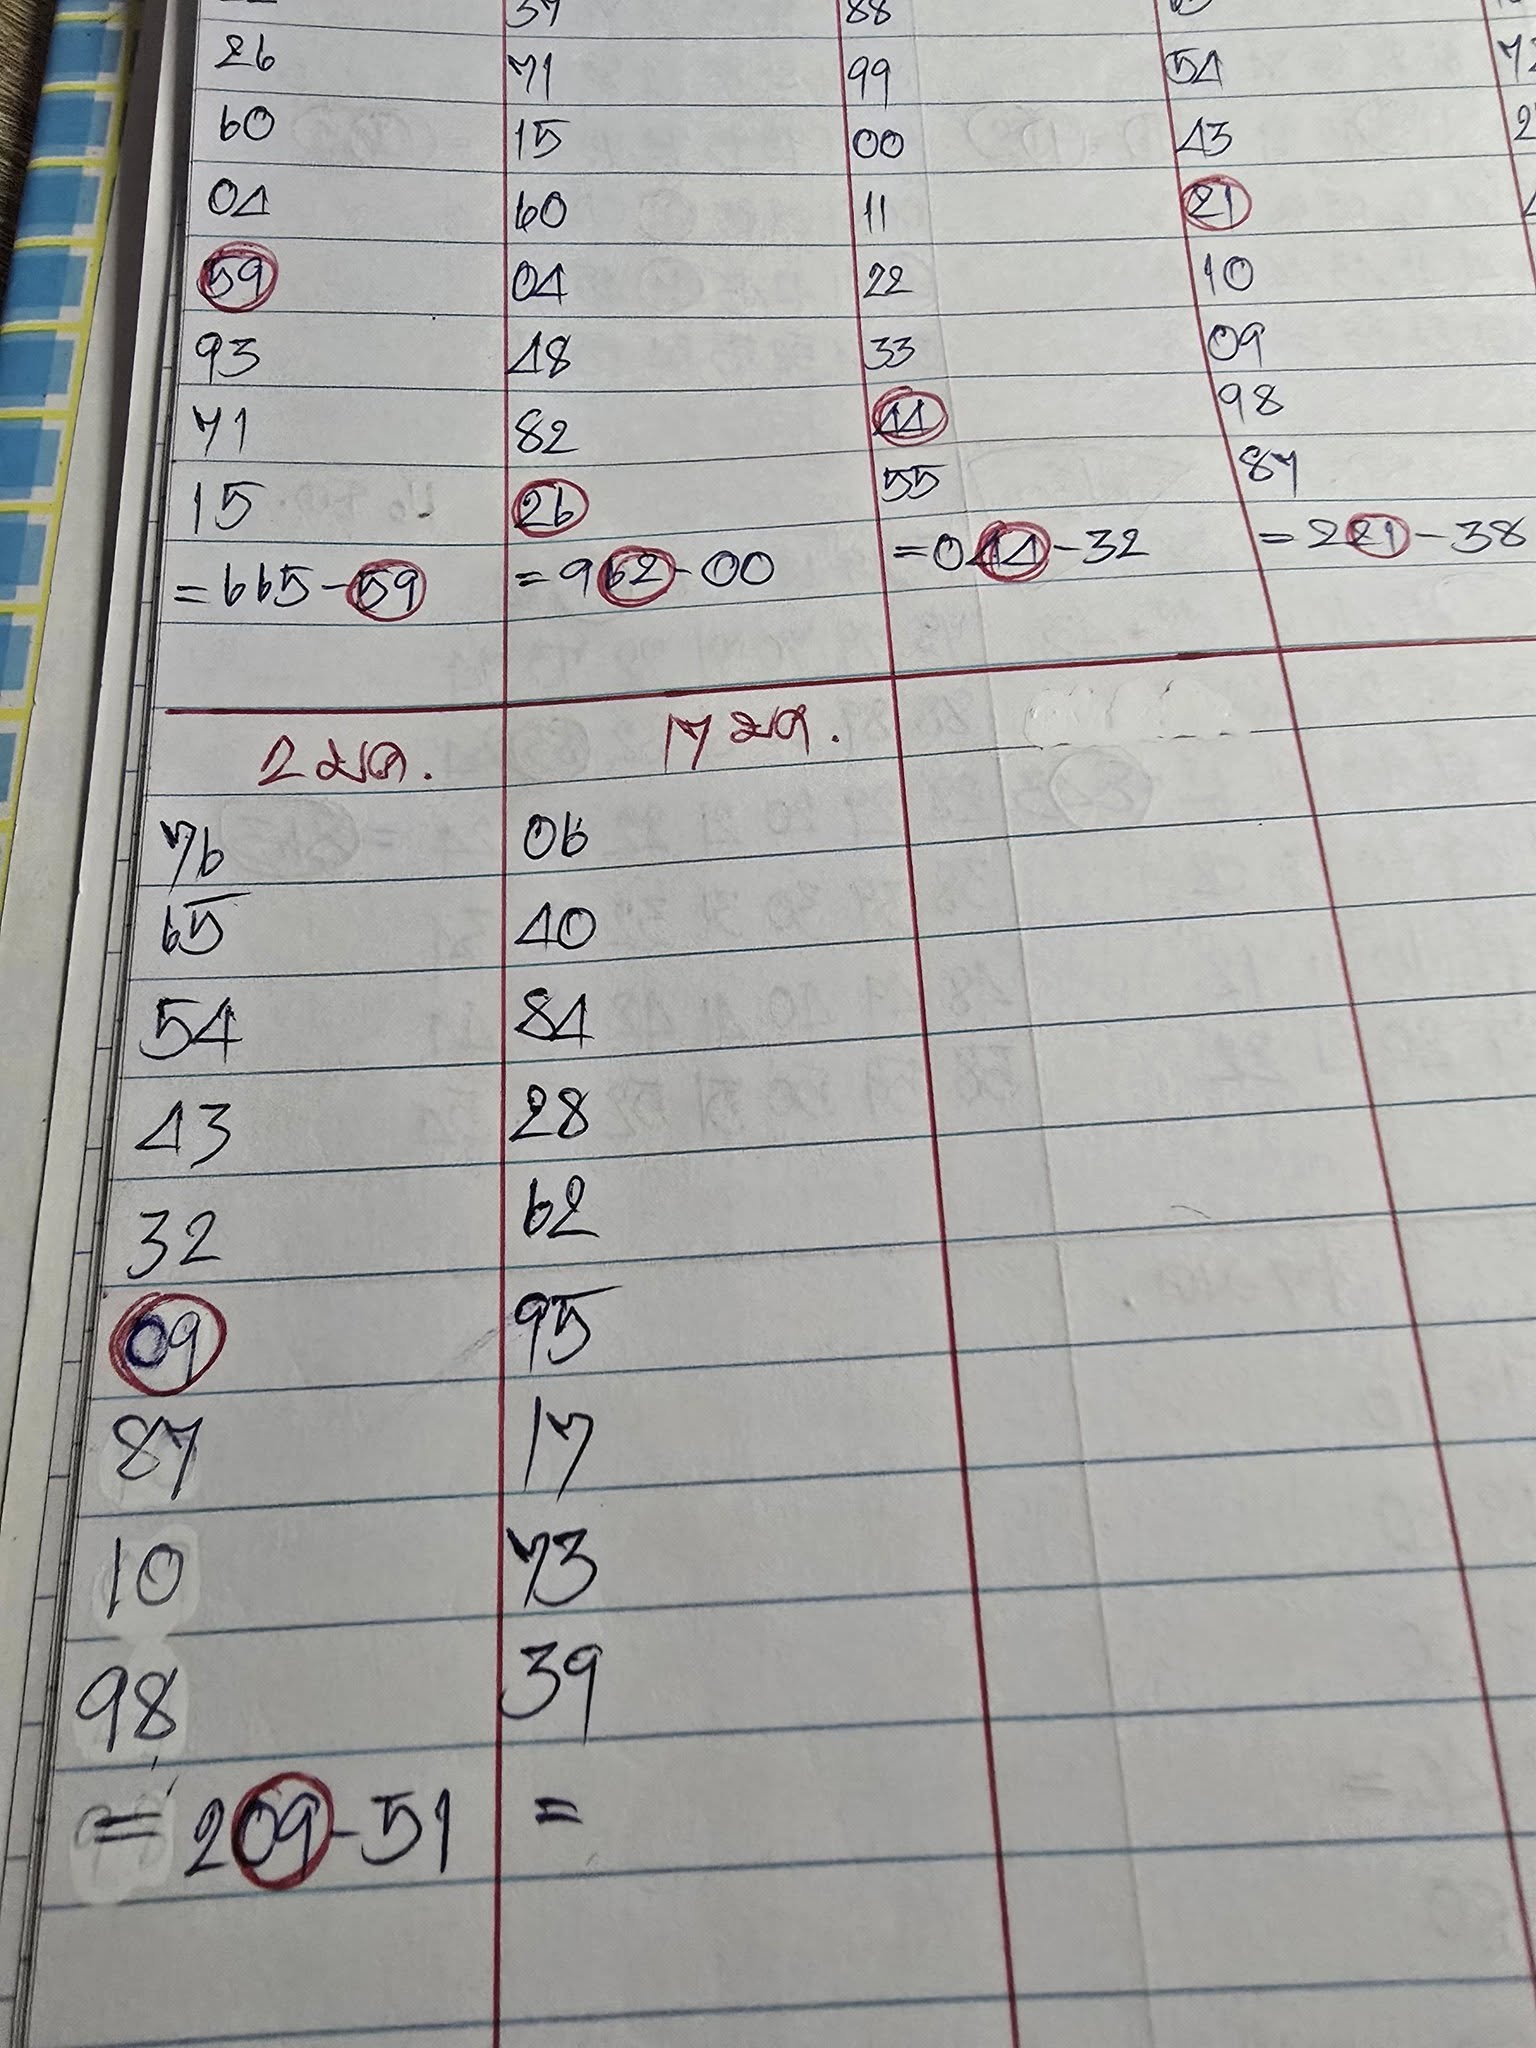 26
60
04
59
93
71
15
= 665-59
71
15
60
04
48
82
26
= 962-00
88
99
00
11
22
33
44
55
= 044-32
54
43
21
10
09
98
87
= 221-38
2 มค.
76
65
54
43
32
09
87
10
98
= 209-51
17 มค.
06
40
84
28
62
95
17
73
39
=